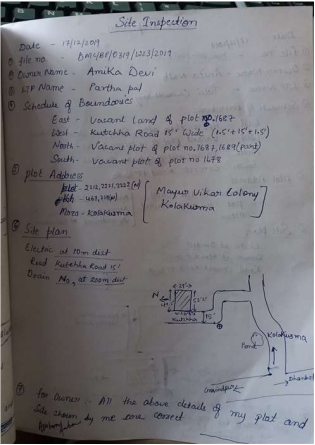 Site Inspection
Date - 17/12/2019
① File no - DMC/BP/0319/1223/2019
② Owner Name - Anika Devi
③ LTP Name - Partha pal
④ Schedule of Boundaries
East - Vacant Land of plot no. 1687
West - Kutchha Road 15' Wide (1.5+15+1.5)
North - Vacant plot of plot no. 1687, 1689(part)
South - vacant plot of plot no 1678
⑤ plot Address
plot - 2212, 2221, 2222(P)
Mayur Vihar Colony
Kolakusma
Moza - Kolakusma
⑥ Site plan
Electric at 10m dist
Road Kutchha Road 15'
Drain No, at 200m dist
N
15'
Kutchha
Kolakusma
Pond
Dhanbad
⑦ For Owner :- All the above details of my plot and
Site shown by me are correct.